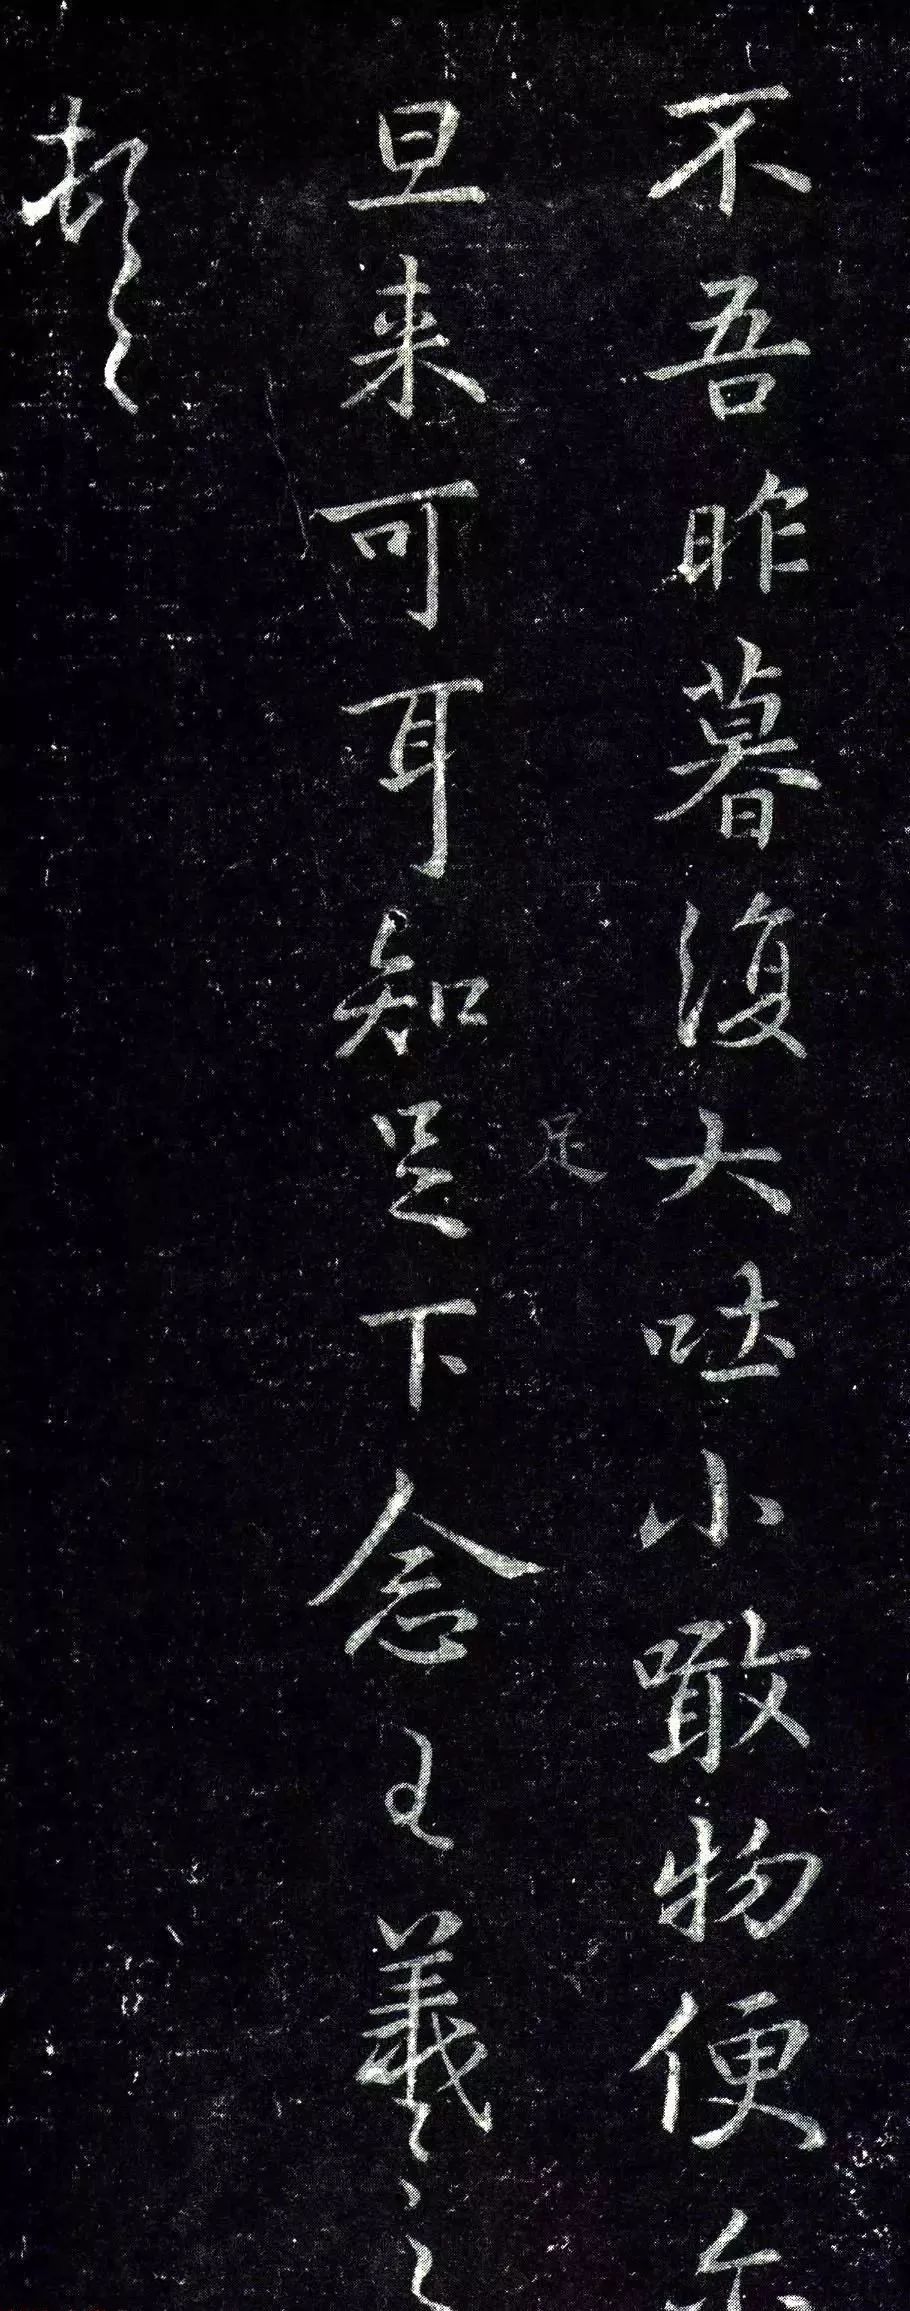 不吾昨暮復大吐小噉物便尔
旦来可耳知足下念王羲之
足
頓